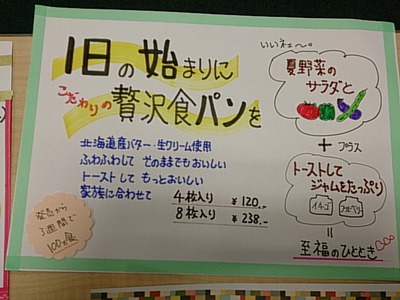 1日の始まりに
こだわりの贅沢食パンを
北海道産バター・生クリーム使用
ふわふわして そのままでもおいしい
トーストして もっとおいしい
家族に合わせて
4枚入り ¥120.-
8枚入り ¥238.-
発売から
3週間で
100万食
いいネェ〜。
夏野菜の
サラダと
+ プラス
トーストして
ジャムをたっぷり
イチゴ
ブルーベリー
=
至福のひととき